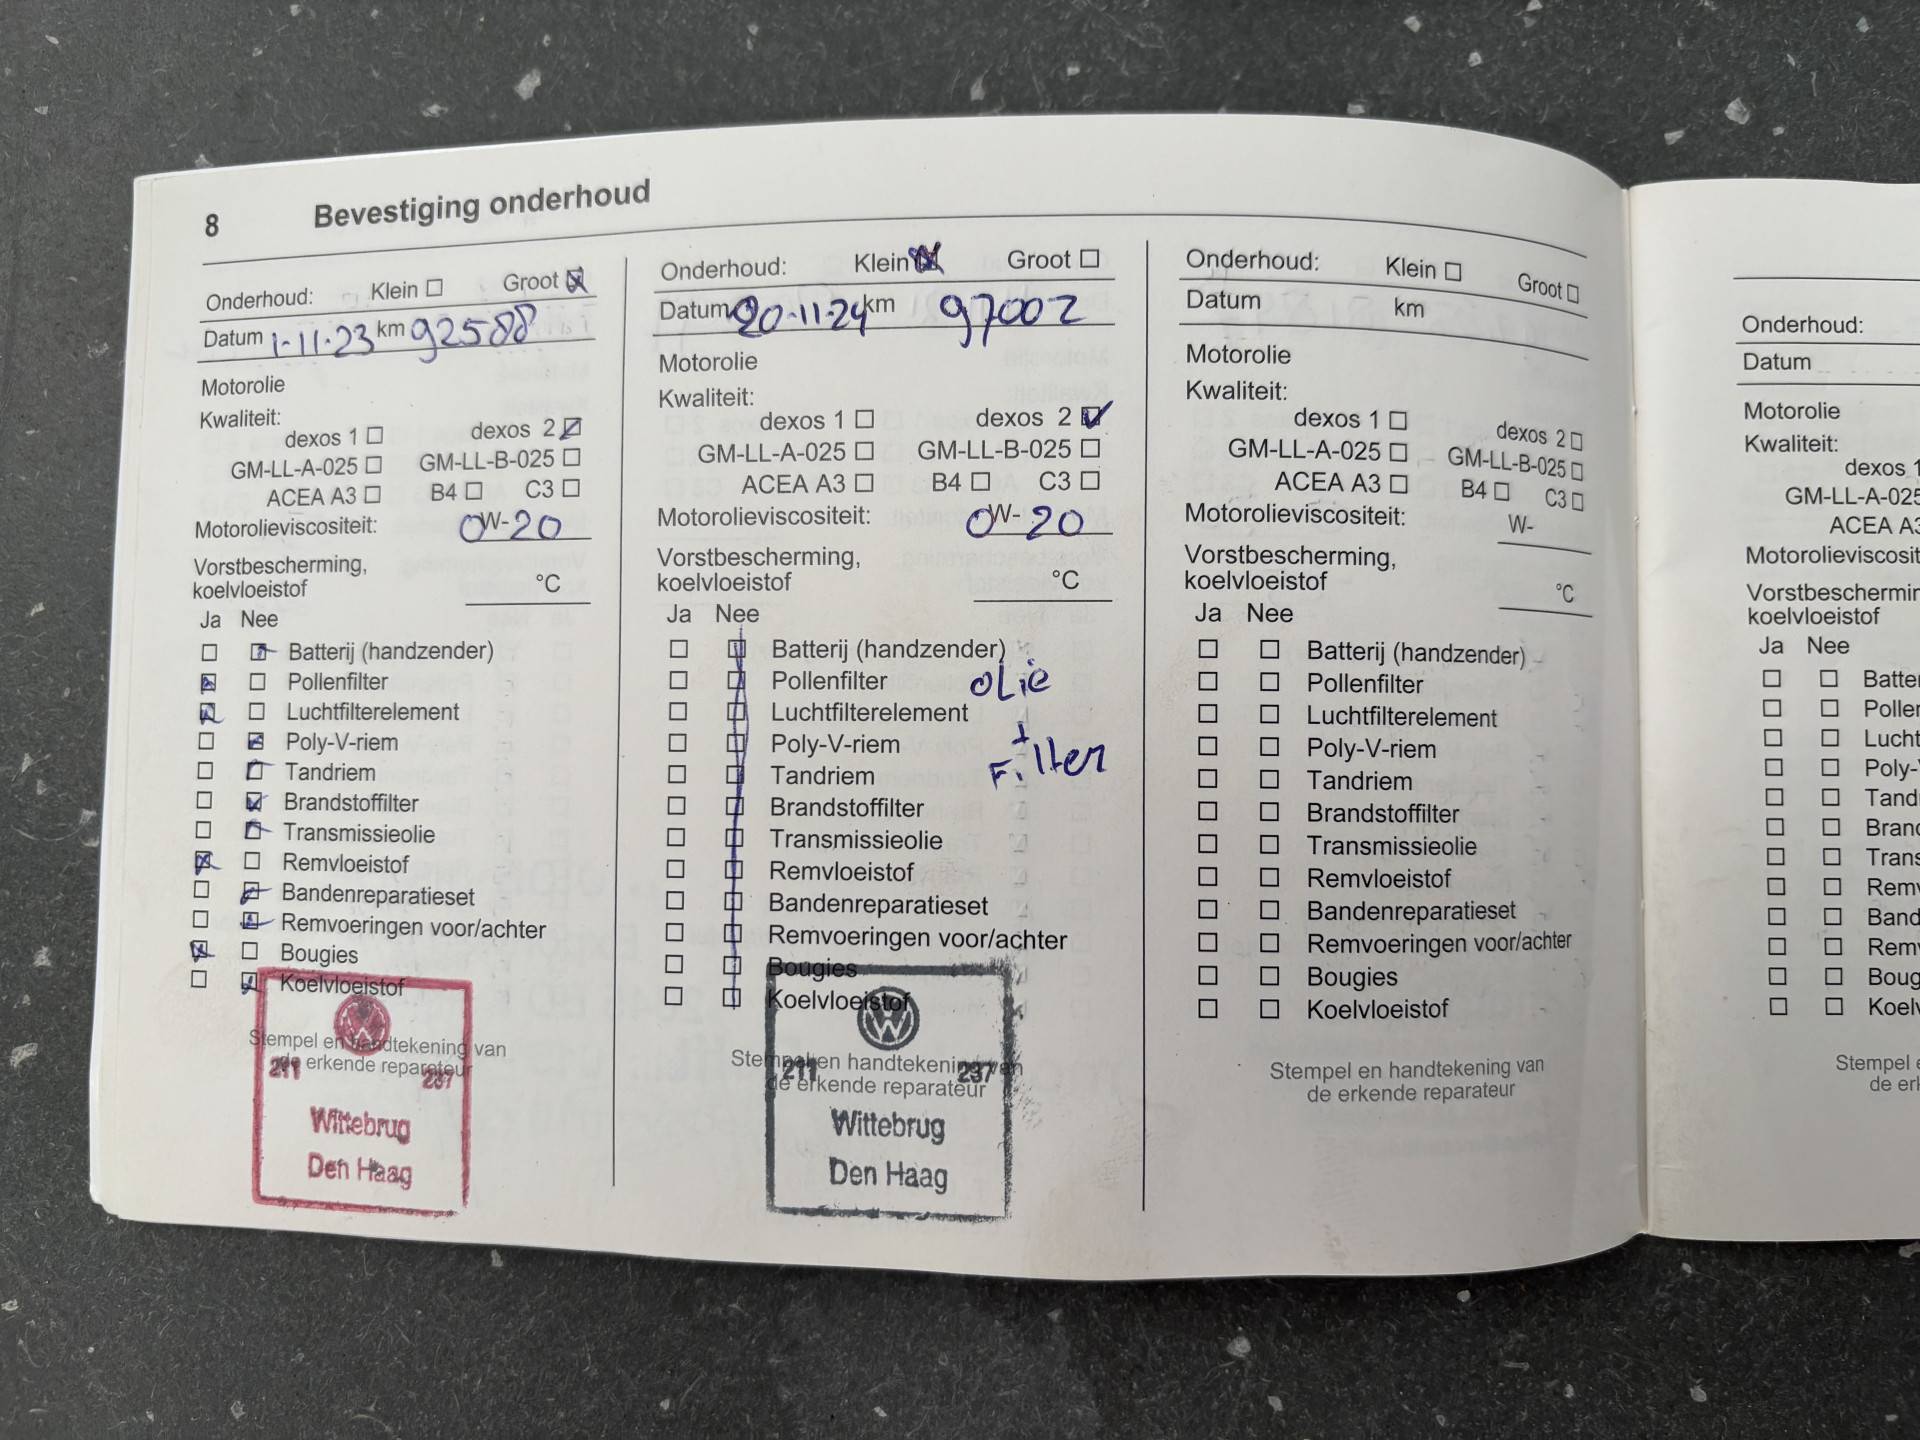 8 Bevestiging onderhoud
Onderhoud: Klein Groot
Datum 1-11-23 km 92588
Motorolie
Kwaliteit:
dexos 1 dexos 2
GM-LL-A-025 GM-LL-B-025
ACEA A3 B4 C3
Motorolieviscositeit: 0W-20
Vorstbescherming,
koelvloeistof °C
Ja Nee
Batterij (handzender)
Pollenfilter
Luchtfilterelement
Poly-V-riem
Tandriem
Brandstoffilter
Transmissieolie
Remvloeistof
Bandenreparatieset
Remvoeringen voor/achter
Bougies
Koelvloeistof
Stempel en handtekening van
de erkende reparateur
211 237
Wittebrug
Den Haag
Onderhoud: Klein Groot
Datum 20-11-24 km 97002
Motorolie
Kwaliteit:
dexos 1 dexos 2
GM-LL-A-025 GM-LL-B-025
ACEA A3 B4 C3
Motorolieviscositeit: 0W-20
Vorstbescherming,
koelvloeistof °C
Ja Nee
Batterij (handzender)
Pollenfilter olie
Luchtfilterelement
Poly-V-riem +
Tandriem Filter
Brandstoffilter
Transmissieolie
Remvloeistof
Bandenreparatieset
Remvoeringen voor/achter
Bougies
Koelvloeistof
Stempel en handtekening van
de erkende reparateur
211 237
Wittebrug
Den Haag
Onderhoud: Klein Groot
Datum km
Motorolie
Kwaliteit:
dexos 1 dexos 2
GM-LL-A-025 GM-LL-B-025
ACEA A3 B4 C3
Motorolieviscositeit: W-
Vorstbescherming,
koelvloeistof °C
Ja Nee
Batterij (handzender)
Pollenfilter
Luchtfilterelement
Poly-V-riem
Tandriem
Brandstoffilter
Transmissieolie
Remvloeistof
Bandenreparatieset
Remvoeringen voor/achter
Bougies
Koelvloeistof
Stempel en handtekening van
de erkende reparateur
Onderhoud:
Datum
Motorolie
Kwaliteit:
dexos 1
GM-LL-A-025
ACEA A3
Motorolieviscosit
Vorstbeschermin
koelvloeistof
Ja Nee
Batter
Pollen
Lucht
Poly-
Tand
Bran
Trans
Remv
Band
Remv
Boug
Koelv
Stempel e
de erk